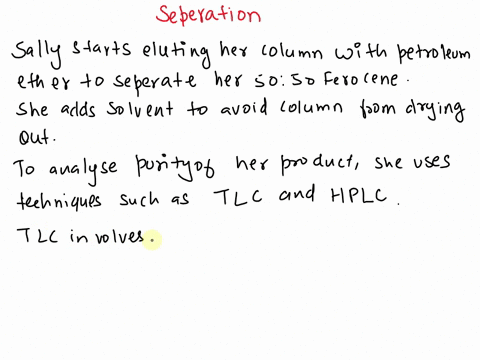 Seperation
Sally starts eluting her column with petroleum
ether to seperate her 50:50 Ferocene.
She adds solvent to avoid column from drying
out.
To analyse purity of her product, she uses
techniques such as TLC and HPLC.
TLC involves.